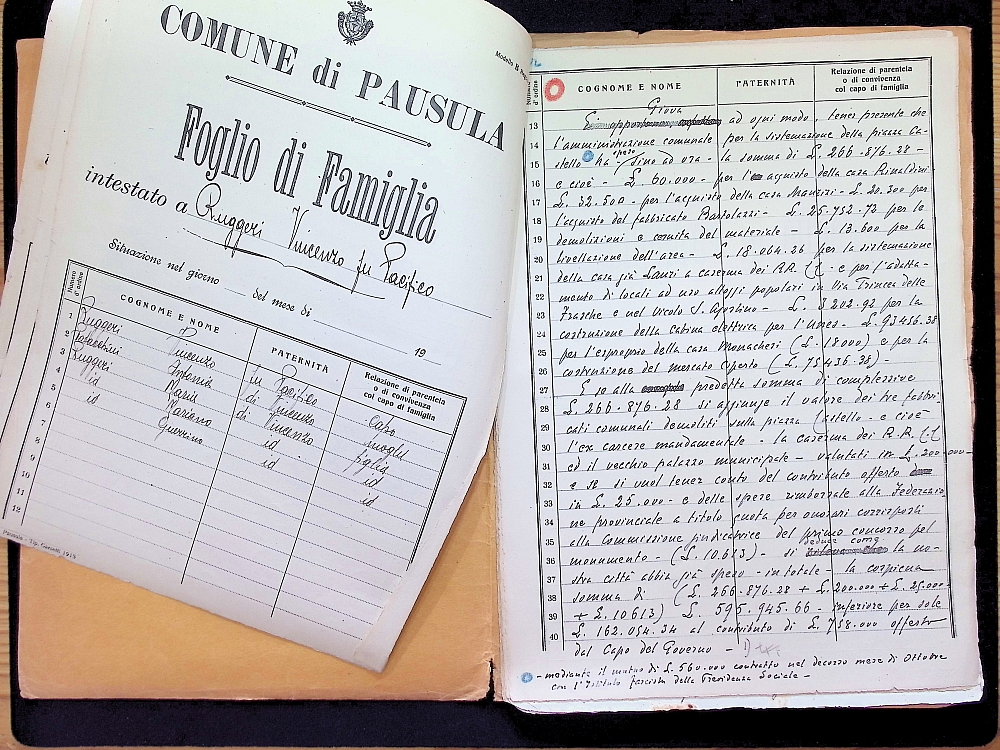 COMUNE di PAUSULA
Modello B
Foglio di Famiglia
intestato a Ruggeri Vincenzo fu Pacifico
Situazione nel giorno del mese di 19
Numero d'ordine
COGNOME E NOME
PATERNITÀ
Relazione di parentela o di convivenza col capo di famiglia
1 Ruggeri Vincenzo fu Pacifico Capo
2 Antonia di Vincenzo moglie
3 Ruggeri Maria di Vincenzo figlia
4 id Mariano id id
5 id Guerrino id id
6
7
8
9
10
11
12
Pausula - Tip. 1913
Numero d'ordine
COGNOME E NOME
PATERNITÀ
Relazione di parentela o di convivenza col capo di famiglia
Giova
13 ad ogni modo, tener presente che
14 l'amministrazione comunale per la sistemazione della piazza Ca-
speso
15 stello ha sino ad ora - la somma di £. 266.876.28 -
16 e cioè - £. 60.000 - per l'acquisto della casa Rinaldini
17 £. 32.500 - per l'acquisto della casa Manzini - £. 20.300 per
18 l'acquisto del fabbricato Bartolazzi - £. 25.752.72 per le
19 demolizioni e cernita del materiale - £. 13.600 per la
20 livellazione dell'area - £. 18.064.26 per la sistemazione
21 della casa già Lauri a caserma dei RR. CC. e per l'adatta-
22 mento di locali ad uso alloggi popolari in Via Trincea delle
23 Frasche e nel vicolo S. Agostino - £. 3202.92 per la
24 costruzione della cabina elettrica per l'Unes - £. 93456.38
25 per l'esproprio della casa Monacheri (£. 18000) e per la
26 costruzione del mercato coperto (£. 75436.38) -
27 E se alla predetta somma di complessive
28 £. 266.876.28 si aggiunge il valore dei tre fabbri
29 cati comunali demoliti sulla piazza Castello - e cioè
30 l'ex carcere mandamentale - la caserma dei R.R. CC
31 ed il vecchio palazzo municipale - valutati in £. 200.000 -
32 e se si vuol tener conto del contributo offerto
33 in £. 25.000 - e delle spese rimborsate alla Federazio
34 ne provinciale a titolo quota per onorari corrisposti
35 alla Commissione giudicatrice del primo concorso pel
deduce come
36 monumento - (£. 10.613) - si la no-
37 stra città abbia già speso - in totale - la cospicua
38 somma di (£. 266.876.28 + £. 200.000 + £. 25.000
39 + £. 10613) £. 595.945.66 - inferiore per sole
40 £. 162.054.34 al contributo di £. 758.000 offerto
dal Capo del Governo -
- mediante il mutuo di £. 560.000 contratto nel decorso mese di Ottobre
con l'Istituto fascista della Previdenza Sociale -